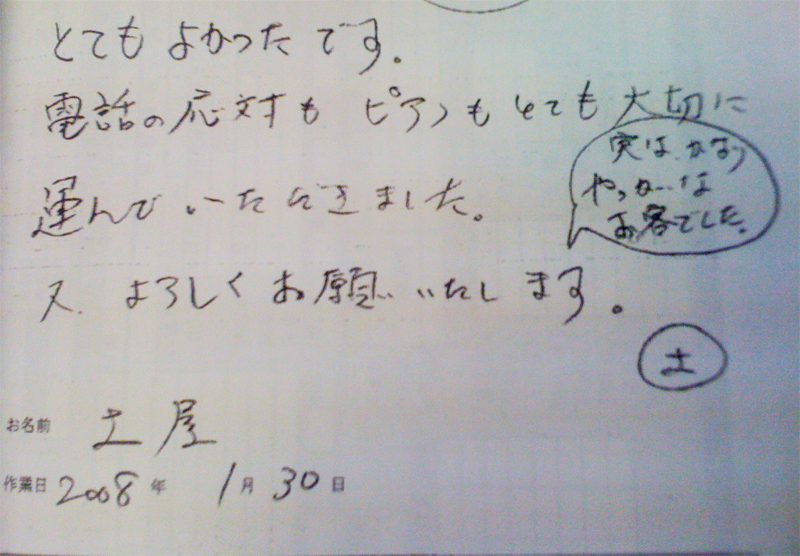 とてもよかったです。
電話の応対も ピアノもとても大切に
運んで いただきました。
又、よろしくお願いいたします。
実は、かなり
やっかいな
お客でした。
土
お名前 土屋
作業日 2008年 1月30日